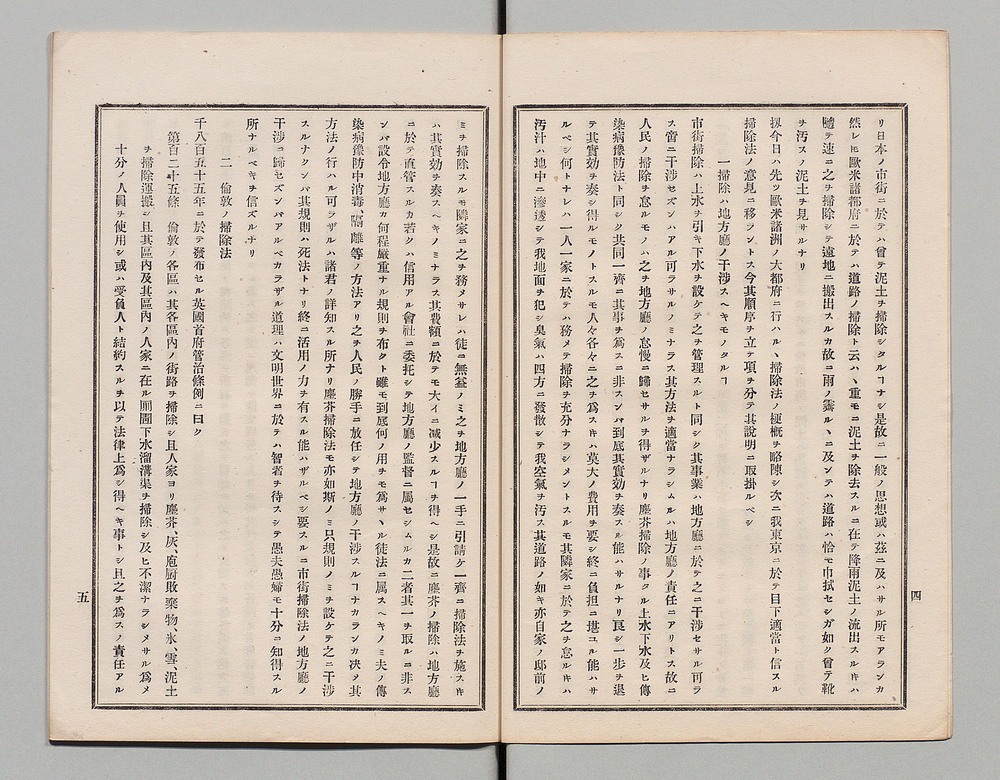 リ日本ノ市街ニ於テハ曾テ泥土ヲ掃除シタルヿナシ是故ニ一般ノ思想或ハ茲ニ及ハサル所モアランカ
然レㇳモ歐米諸都府ニ於テハ道路ノ掃除ト云ハヽ重モニ泥土ヲ除去スルニ在テ降雨泥土ノ流出スルキハ
隨テ速ニ之ヲ掃除シテ遠地ニ搬出スルカ故ニ雨ノ霽ルヽニ及ンテハ道路ハ恰モ巾拭セシガ如ク曾テ靴
ヲ汚スノ泥土ヲ見サルナリ
扨今日ハ先ツ歐米諸洲ノ大都府ニ行ハルヽ掃除法ノ梗概ヲ略陳シ次ニ我東京ニ於テ目下適當ト信スル
掃除法ノ意見ニ移ラントス今其順序ヲ立テ項ヲ分テ其說明ニ取掛ルベシ
一 掃除ハ地方廳ノ干涉スヘキモノタルヿ
市街掃除ハ上水ヲ引キ下水ヲ設ケテ之ヲ管理スルト同シク其事業ハ地方廳ニ於テ之ニ干涉セサル可ラ
ス啻ニ干涉セズンハアル可ラサルノミナラス其方法ヲ適當ナラシムルハ地方廳ノ責任ニアリトス故ニ
人民ノ掃除ヲ怠ルモノハ之ヲ地方廳ノ怠慢ニ歸セサルヲ得ザルナリ塵芥掃除ノ事タル上水下水及ヒ傳
染病豫防法ト同シク共同一齊ニ其事ヲ爲スニ非スンハ到底其實効ヲ奏スル能ハサルナリ良シ一步ヲ退
テ其實効ヲ奏シ得ルモノトスルモ人々各々ニ之ヲ爲スキハ莫大ノ費用ヲ要シ終ニ負担ニ堪ユル能ハサ
ルベシ何トナレハ一人一家ニ於テハ務メテ掃除ヲ充分ナラシメントスルモ其隣家ニ於テ之ヲ怠ルキハ
汚汁ハ地中ニ滲透シテ我地面ヲ犯シ臭氣ハ四方ニ發散シテ我空氣ヲ汚ス其道路ノ如キ亦自家ノ邸前ノ
四
ミヲ掃除スルモ隣家ニ之ヲ務メサレハ徒ニ無益ノミ之ヲ地方廳ノ一手ニ引請ケ一齊ニ掃除法ヲ施スキ
ハ其實効ヲ奏スヘキノミナラス其費額ニ於テモ大イニ减少スルヿヲ得ヘシ是故ニ塵芥ノ掃除ハ地方廳
ニ於テ直管スルカ若クハ信用アル會社ニ委托シテ地方廳ノ監督ニ属セシムルカ二者其一ヲ取ルニ非ス
ンバ設令地方廳カ何程嚴重ナル規則ヲ布クト雖モ到底何ノ用ヲモ爲サヽル徒法ニ属スヘキノミ夫ノ傳
染病豫防中消毒、隔離等ノ方法アリ之ヲ人民ノ勝手ニ放任シテ地方廳ノ干涉スルヿナカランカ决メ其
方法ノ行ハル可ラザルハ諸君ノ詳知スル所ナリ塵芥掃除法モ亦如斯ノミ只規則ノミヲ設ケテ之ニ干涉
スルナクンバ其規則ハ死法トナリ終ニ活用ノ力ヲ有スル能ハザルベシ要スルニ市街掃除法ノ地方廳ノ
干涉ニ歸セズンバアルベカラザル道理ハ文明世界ニ於テハ智者ヲ待スシテ愚夫愚婦モ十分ニ知得スル
所ナルベキヲ信ズルナリ
二 倫敦ノ掃除法
千八百五十五年ニ於テ發布セル英國首府管治條例ニ曰ク
第百二十五條 倫敦ノ各區ハ其各區內ノ街路ヲ掃除シ且人家ヨリ塵芥、灰、庖厨敗棄物、氷、雪、泥土
ヲ掃除運搬シ且其區內及其區內ノ人家ニ在ル厠圊下水溜溝渠ヲ掃除シ及ヒ不潔ナラシメサル爲メ
十分ノ人員ヲ使用シ或ハ受負人ト結約スルヲ以テ法律上爲シ得ヘキ事トシ且之ヲ爲スノ責任アル
五